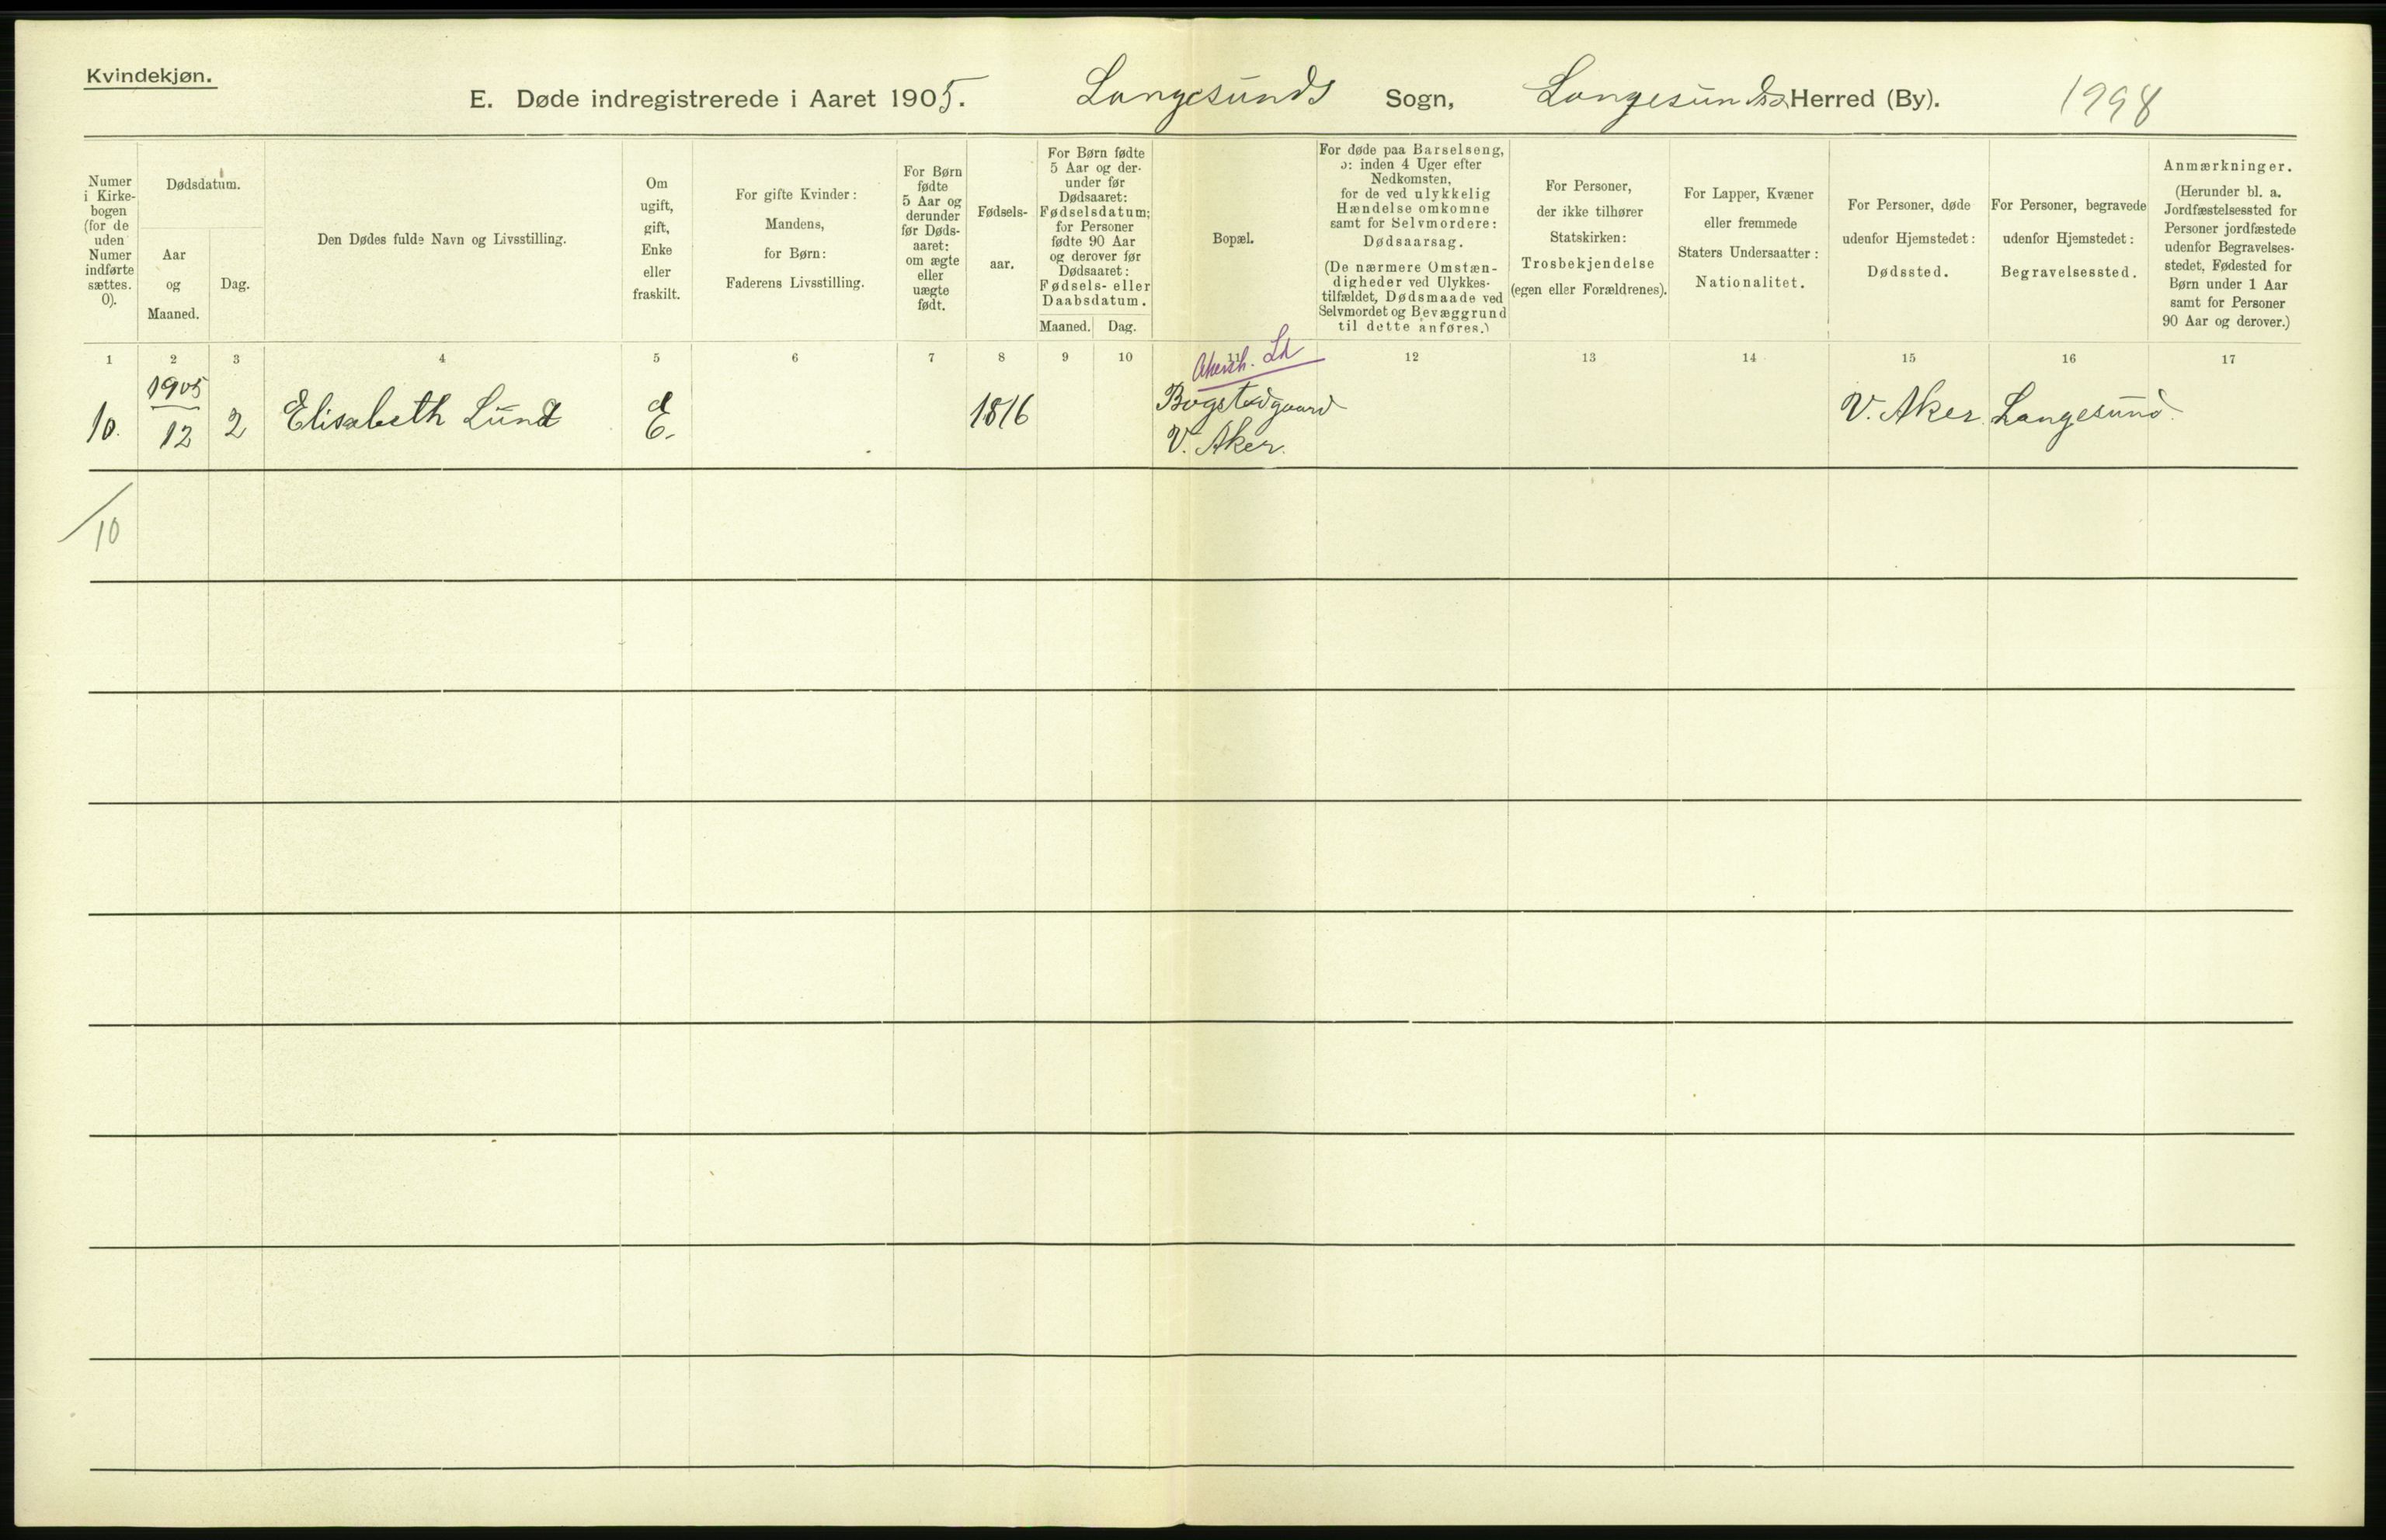 Kvindekjøn.
E. Døde indregistrerede i Aaret 1905. Langesunds Sogn, Langesunds Herred (By). 1998
Numer
i Kirke-
bogen
(for de
uden
Numer
indførte
sættes.
0).
Dødsdatum.
Aar
og
Maaned.
Dag.
Den Dødes fulde Navn og Livsstilling.
Om
ugift,
gift,
Enke
eller
fraskilt.
For gifte Kvinder:
Mandens,
for Børn:
Faderens Livsstilling.
For Børn
fødte
5 Aar og
derunder
før Døds-
aaret:
om ægte
eller
uægte
født.
Fødsels-
aar.
For Børn fødte
5 Aar og der-
under før
Dødsaaret:
Fødselsdatum;
for Personer
fødte 90 Aar
og derover før
Dødsaaret:
Fødsels- eller
Daabsdatum.
Maaned. Dag.
Bopæl.
For døde paa Barselseng,
ɔ: inden 4 Uger efter
Nedkomsten,
for de ved ulykkelig
Hændelse omkomne
samt for Selvmordere:
Dødsaarsag.
(De nærmere Omstæn-
digheder ved Ulykkes-
tilfældet, Dødsmaade ved
Selvmordet og Bevæggrund
til dette anføres.)
For Personer,
der ikke tilhører
Statskirken:
Trosbekjendelse
(egen eller Forældrenes).
For Lapper, Kvæner
eller fremmede
Staters Undersaatter:
Nationalitet.
For Personer, døde
udenfor Hjemstedet:
Dødssted.
For Personer, begravede
udenfor Hjemstedet:
Begravelsessted.
Anmærkninger.
(Herunder bl. a.
Jordfæstelsessted for
Personer jordfæstede
udenfor Begravelses-
stedet, Fødested for
Børn under 1 Aar
samt for Personer
90 Aar og derover.)
1 2 3 4 5 6 7 8 9 10 11 12 13 14 15 16 17
Akersh.
1905
10. 12 2 Elisabeth Lund E. 1816 Bogstadgaard V. Aker. Langesund.
V. Aker.
10